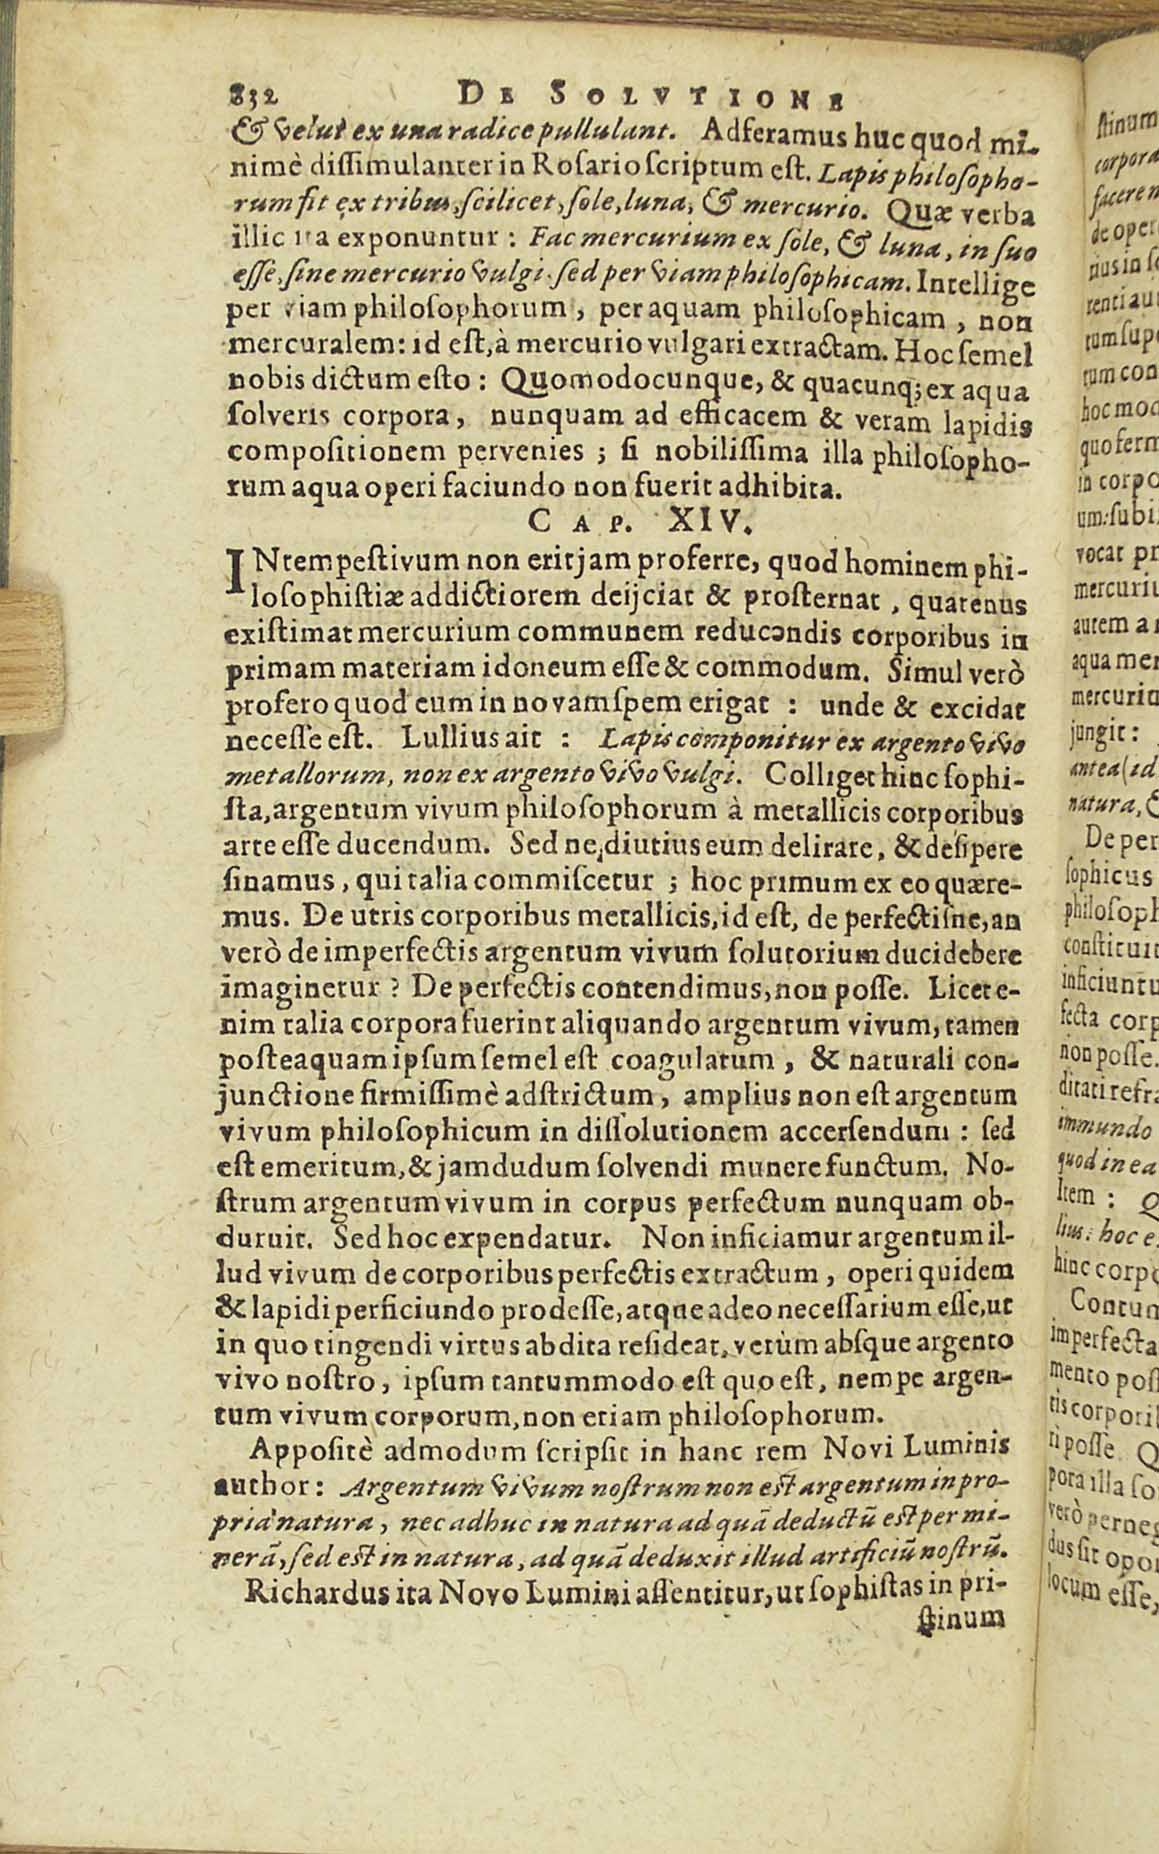 832 DE SOLVTIONE
& velut ex una radice pullulant. Adferamus huc quod mi-
nimè dissimulanter in Rosario scriptum est. Lapis philosopho-
rum fit ex tribus, scilicet, sole, luna, & mercurio. Quæ verba
illic ita exponuntur: Fac mercurium ex sole, & luna, in suo
esse, sine mercurio vulgi, sed per viam philosophicam. Intellige
per viam philosophorum, per aquam philosophicam, non
mercuralem: id est, à mercurio vulgari extractam. Hoc semel
nobis dictum esto: Quomodocunque, & quacunq; ex aqua
solveris corpora, nunquam ad efficacem & veram lapidis
compositionem pervenies; si nobilissima illa philosopho-
rum aqua operi faciundo non fuerit adhibita.
CAP. XIV.
INtempestivum non erit jam proferre, quod hominem phi-
losophistiæ addictiorem deijciat & prosternat, quatenus
existimat mercurium communem reducendis corporibus in
primam materiam idoneum esse & commodum. Simul verò
profero quod eum in novam spem erigat: unde & excidat
necesse est. Lullius ait: Lapis componitur ex argento vivo
metallorum, non ex argento vivo vulgi. Colliget hinc sophi-
sta, argentum vivum philosophorum à metallicis corporibus
arte esse ducendum. Sed ne diutius eum delirare, & desipere
sinamus, qui talia commiscetur; hoc primum ex eo quære-
mus. De utris corporibus metallicis, id est, de perfectisne, an
verò de imperfectis argentum vivum solutorium duci debere
imaginetur? De perfectis contendimus, non posse. Licet e-
nim talia corpora fuerint aliquando argentum vivum, tamen
posteaquam ipsum semel est coagulatum, & naturali con-
junctione firmissimè adstrictum, amplius non est argentum
vivum philosophicum in dissolutionem accersendum: sed
est emeritum, & jamdudum solvendi munere functum. No-
strum argentum vivum in corpus perfectum nunquam ob-
duruit. Sed hoc expendatur. Non inficiamur argentum il-
lud vivum de corporibus perfectis extractum, operi quidem
& lapidi perficiundo prodesse, atque adeo necessarium esse, ut
in quo tingendi virtus abdita resideat, verùm absque argento
vivo nostro, ipsum tantummodo est quo est, nempe argen-
tum vivum corporum, non etiam philosophorum.
Appositè admodum scripsit in hanc rem Novi Luminis
author: Argentum vivum nostrum non est argentum in pro-
pria natura, nec adhuc in natura ad quã deductũ est per mi-
nerã, sed est in natura, ad quã deduxit illud artificiũ nostrũ.
Richardus ita Novo Lumini assentitur, ut sophistas in pri-
stinum
stinum
corpora
facere
de oper
in corpo
vocat pr
mercuriu
autem a
aqua mer
mercuriu
jungit:
antea (id
natura,
De per
sophicus
philosoph
constituit
inficiuntu
fecta corp
non posse.
ditati refr
immundo
quod in ea
Item: Q
lius: hoc e
hinc corp
Contun
imperfecta
mento pos
tis corpori
ri posse. Q
pora illa so
verò perneg
dus sit opo
locum esse,